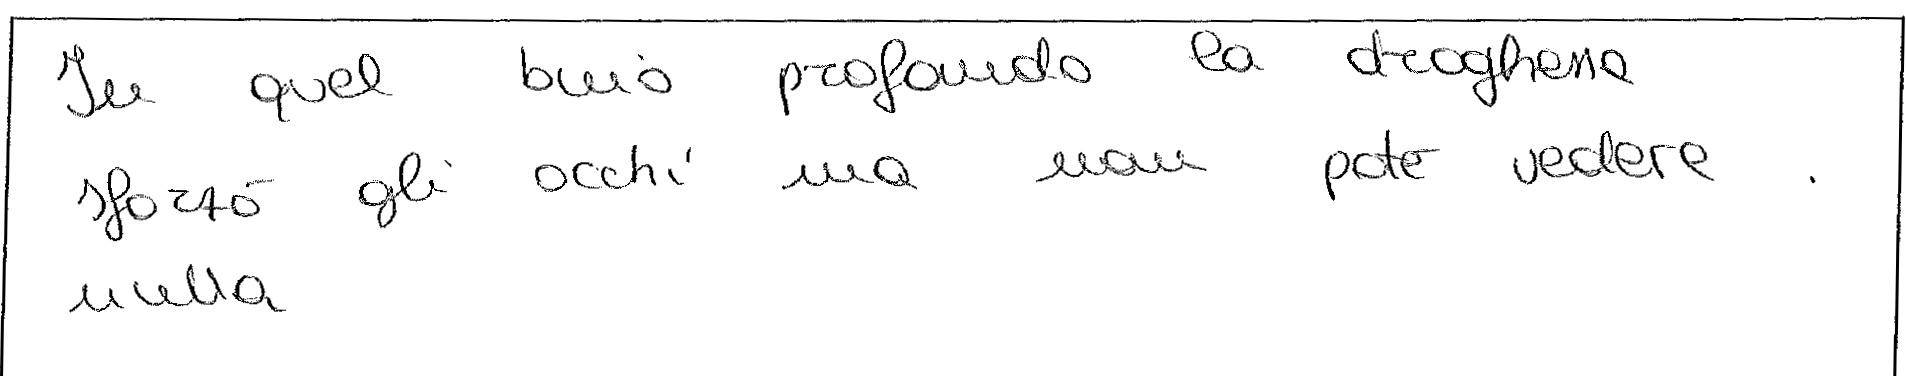 In quel buio profondo la droghena
sforzò gli occhi ma non potè vedere .
nulla